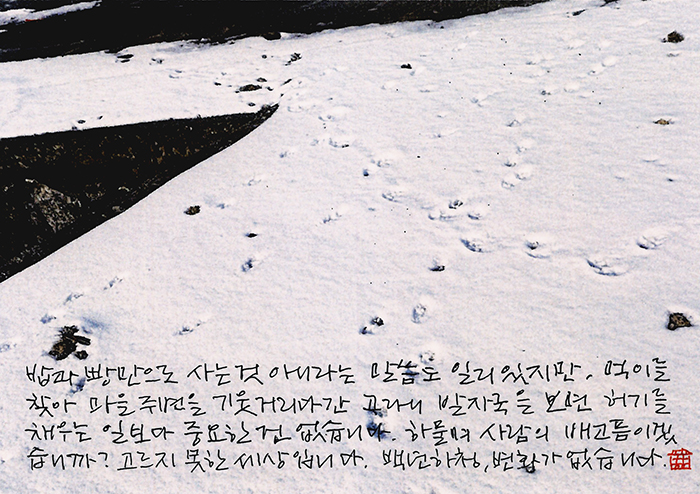 밥과 빵만으로 사는것 아니라는 말씀도 일리 있지만, 먹이를
찾아 마을주변을 기웃거리다간 고라니 발자국을 보면 허기를
채우는 일보다 중요한건 없습니다. 하물며 사람의 배고픔이겠
습니까? 고르지 못한 세상입니다. 백년하청, 변함가 없습니다.